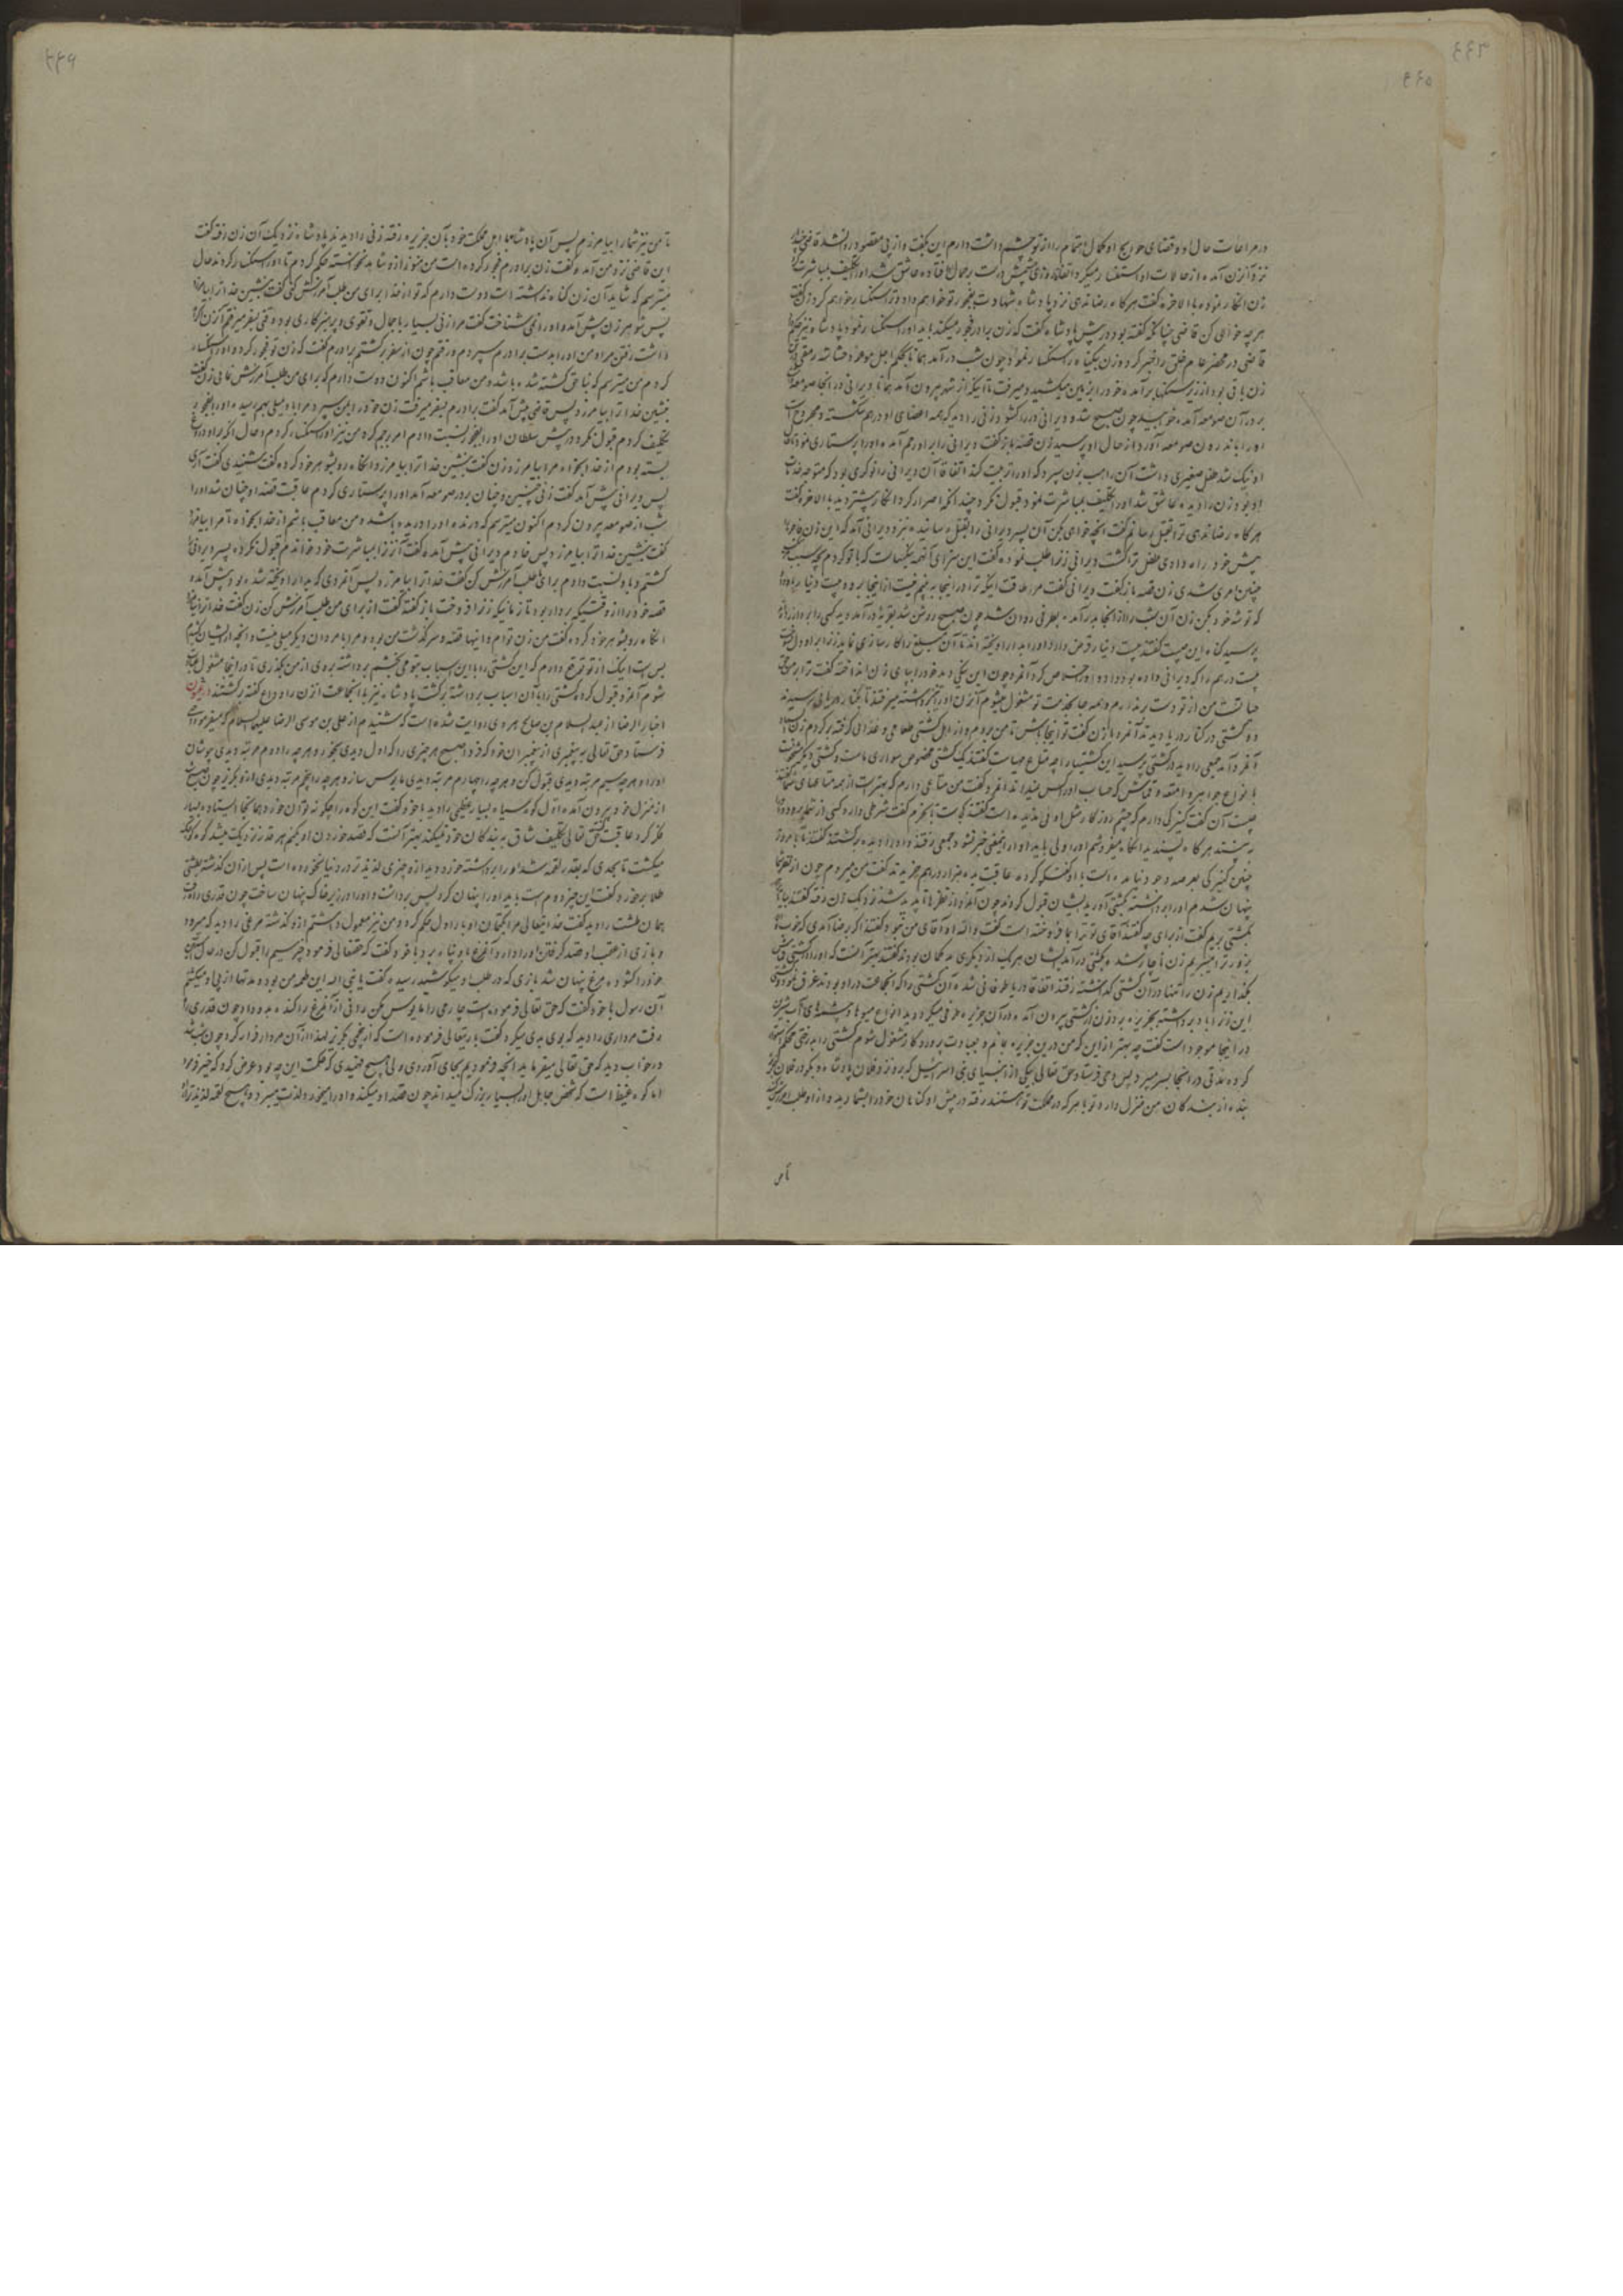 در مراعات حال او و قضای حوایج او کمال اهتمام را از تو چشم داشت دارم این بگفت و از پی مقصود روانه شد قاضی
نزد آن زن آمده از حالات او استفسار میکرد اتفاقا روزی چشمش درست بر جمال او افتاده عاشق شد او را تکلیف مباشرت
زن انکار نموده بالاخره گفت هر گاه رضا ندهی نزد پادشاه شهادت بفجور تو خواهم داد و ترا سنگسار خواهم کرد زن گفت
هر چه خواهی کن قاضی چنانکه گفته بود در پیش پادشاه گفت که زن برادرم فجور میکند باید او را سنگسار نمود پادشاه نیز
قاضی در محضر عام خلق را خبر کرده زن بیگناه را سنگسار نمود چون شب در آمد
زن باقی بود از زیر سنگها بر آمده خود را بر زمین میکشید و میرفت تا اینکه از شهر بیرون آمد همانا دیرانی در آنجا صومعه
بر در آن صومعه آمده خوابید چون صبح شد و دیرانی در را گشود زنی را دید که همه اعضای او در هم شکسته و مجروح است
او را باندرون صومعه آورد از حال او پرسید زن قصه باز گفت دیرانی را بر او رحم آمده او را پرستاری نمود تا
او نیک شد طفل صغیری داشت آن راهب بزن سپرد که او را تربیت کند اتفاقا آن دیرانی را نوکری بود که متوجه خدمات
او بود زن را دیده عاشق شد او را تکلیف بمباشرت نمود قبول نکرد چندانکه اصرار کرد انکار بیشتر دید بالاخره گفت
هر گاه رضا ندهی ترا بقتل رسانم گفت آنچه خواهی بکن آن پسر دیرانی را بقتل رسانیده نزد دیرانی آمد که این زن فاجره
پیش خود راه دادی طفل ترا کشت دیرانی زنرا طلب نموده گفت این سزای آنهمه نیکیهاست که با تو کردم بچه سبب
چنین امری شدی زن قصه باز گفت دیرانی گفت مرا طاقت اینکه ترا در اینجا به بینم نیست از اینجا برو و بیست دینار
که توشه خود بکن زن آن شب را از آنجا بدر آمده بطرفی روان شد چون صبح روشن شد بقریه در آمد دید کسی را بر دار
پرسید گناه این چیست گفتند بیست دینار قرض دارد او را بدار آویخته اند تا آن مبلغ را کارسازی نماید زنرا بر او دل سوخت
بیست درهم را که دیرانی داده بود داده او را خلاص کرد آنمرد چون این نیکی دید خود را بپای زن انداخته گفت ترا بر من
من از تو دست بر ندارم و همه جا بخدمت تو مشغول میشوم آنزن او را نیز برداشته میرفتند تا بکنار دریا رسیدند
ده کشتی در کنار دریا دید آنمرد بزن گفت تو اینجا باش تا من بروم و از اهل کشتی طعامی و غذائی گرفته بر گردم
آنمرد آمد جمعی را دید در کشتی پرسید این کشتیها را چه متاع مهیاست گفتند یک کشتی مخصوص سواری ماست و کشتی دیگر
بانواع جواهر و امتعه و قماش که حساب او را کس نمیداند آنمرد گفت من متاعی دارم که بهتر است از همه متاعهای شما گفتند
چیست آن گفت کنیزکی دارم که چشم روزگار مثل او ندیده است گفتند کجاست تا بخریم گفت شرطی دارد کسی از شما برود
به بیند هر گاه بپسندید آنگاه میفروشم او را ولی باید او را از اینمعنی خبر نشود جمعی رفتند و او را دیده بر گشتند گفتند
چنین کنیزکی بعرصه وجود نیامده است با او گفتگو کرده عاقبت بده هزار درهم خریدند گفت من میروم چون از نظر شما
پنهان شدم او را برداشته بکشتی آورید ایشان قبول کردند چون آنمرد از نظرها ناپدید شد نزدیک زن رفته گفتند بیا تا
بکشتی بریم گفت از برای چه گفتند آقای تو ترا بما فروخته است گفت والله او آقای من نبود گفتند اگر برضا آمدی که خوب
بزور ترا میبریم زن ناچار شد بکشتی در آمد ایشان هر یک از دیگری بدگمان بودند گفتند بهتر آنست که او را در کشتی قماش
بگذاریم زن را تنها در آن کشتی گذاشته رفتند اتفاقا دریا طوفانی شد آن کشتی را که آنجماعت در او بودند غرق نمود کشتی
این زن را باد برداشته بجزیره برد زن از کشتی بیرون آمده در آن جزیره طوفی میکرد دید انواع میوها و چشمهای آب شیرین
در آنجا موجود است گفت چه بهتر از این که من درین جزیره بمانم و بعبادت پروردگار مشغول شوم کشتی را بدرختی محکم
کرده مدتی در آنجا بسر میبرد پس وحی فرستاد حق تعالی به یکی از انبیای بنی اسرائیل که برو نزد فلان پادشاه و بگو در فلان
بنده از بندگان من منزل دارد تو با هر که در مملکت تو هستند رفته در پیش او گناهان خود را بشمارید و از او طلب آمرزش
تا من
تا من نیز شما را بیامرزم پس آن پادشاه با اهل مملکت خود بآن جزیره رفته زنی را دیدند پادشاه نزدیک آن زن رفته گفت
این قاضی نزد من آمده گفت زن برادرم فجور کرده است من هنوز از او شاهد نخواسته حکم کردم تا او را سنگسار کردند حال
میترسم که شاید آن زن گناه نداشته است دوست دارم که تو از خدا برای من طلب آمرزش کنی گفت بنشین خدا ترا بیامرزد
پس شوهر زن پیش آمده او را نمی شناخت گفت مرا زنی بسیار با جمال و تقوی و پرهیزکاری بود وقتی بسفر میرفتم آنزن
داشت رفتن مرا و من او را بدست برادرم سپردم و رفتم چون از سفر بر گشتم برادرم گفت که زن تو فجور کرد و او را سنگسار
کردم من میترسم که بناحق کشته شده باشد و من معاقب باشم اکنون دوست دارم که برای من طلب آمرزش نمائی زن گفت
بنشین خدا ترا بیامرزد پس قاضی پیش آمد گفت برادرم بسفر میرفت زن خود را بمن سپرد مرا باو میلی بهم رسید او را بفجور
تکلیف کردم قبول نکرد در پیش سلطان او را بفجور نسبت دادم امر برجم کرد من نیز او را سنگسار کردم و حال آنکه بر او دروغ
بسته بودم از خدا بخواه مرا بیامرزد زن گفت بنشین خدا ترا بیامرزد آنگاه رو بشوهر خود کرده گفت شنیدی گفت آری
پس دیرانی پیش آمد گفت زنی چنین و چنان بر در صومعه آمد او را پرستاری کردم عاقبت قصه او چنان شد او را
شب از صومعه بیرون کردم اکنون میترسم که درنده او را دریده باشد و من معاقب باشم از خدا بخواه تا مرا بیامرزد
گفت بنشین خدا ترا بیامرزد پس خادم دیرانی پیش آمده گفت آنزنرا بمباشرت خود خواندم قبول نکرد پسر دیرانی را
کشتم و باو نسبت دادم برای من طلب آمرزش کن گفت خدا ترا بیامرزد پس آنمردی که بدار آویخته شده بود پیش آمده
قصه خود را از وقتیکه بر دار بود تا زمانیکه زنرا فروخت باز گفته گفت از برای من طلب آمرزش کن زن گفت خدا ترا نیامرزد
آنگاه رو بشوهر خود کرده گفت من زن توام و اینها قصه و سرگذشت من بود و مرا با مردان دیگر میلی نیست و آنچه
بس است اینک از تو توقع دارم که این کشتی را با این اسباب بتو می بخشم برداشته بروی از من بگذری تا در اینجا مشغول
شوم آنمرد قبول کرد کشتی را با آن اسباب برداشته بر گشت پادشاه نیز با آنجماعت آنزن را وداع گفته بر گشتند در عیون
اخبار الرضا از عبد السلام بن صالح هروی روایت شده است که شنیدم از علی بن موسی الرضا علیهما السلام که میفرمود وحی
فرستاد حق تعالی به پیغمبری از پیغمبران خود که فردا صبح هر چیزی را که اول دیدی بخور و هر چه را دوم مرتبه دیدی بپوشان
او را و هر چه سیم مرتبه دیدی قبول کن و هر چه را چهارم مرتبه دیدی مایوس مساز و هر چه را پنجم مرتبه دیدی از او بگریز چون صبح شد
از منزل خود بیرون آمده اول کوه سیاه بسیار عظیمی را دید با خود گفت این کوه را چگونه توان خورد همانجا ایستاده بسیار
فکر کرد عاقبت گفت حق تعالی تکلیف شاق بر بندگان خود نمیکند بهتر آنست که قصد خوردن او بکنم هر قدر نزدیک میشد کوه کوچک
میگشت تا بحدی که بقدر لقمه شد او را برداشته خورد دید از و چیزی لذیذ تر در دنیا نخورده است پس از آن گذشته بطشتی
طلا بر خورد گفت این چیز دوم است باید او را پنهان کرد پس برداشت و او را در زیر خاک پنهان ساخت چون قدری راه رفت
همان طشت را دید گفت خدایتعالی مرا بکتمان او بار اول حکم کرد و من نیز معمول داشتم از و گذشته مرغی را دید که میرود
و بازی از عقب او قصد گرفتن او را دارد آنمرغ باو پناه برد با خود گفت که حقتعالی فرمود چیز سیم را قبول کن در حال آستین
خود را گشود مرغ پنهان شد بازی که در طلب او میکوشید رسید گفت یا نبی الله این طعمه من بود مدتها از پی او میگشتم
آن رسول با خود گفت که حق تعالی فرموده است چهارمی را مایوس مکن رانی از آنمرغ را کنده بدو داد چون قدری راه
رفت مرداری را دید که بوی بدی میکرد گفت باریتعالی فرموده است که از پنجمی بگریز لهذا از آن مردار فرار کرد چون شب شد
در خواب دید که حق تعالی میفرماید آنچه فرمودیم بجای آوردی ولی هیچ فهمیدی که حکمت این چه بود عرض کرد که خیر فرمود
اما کوه غیظ است که شخص جاهل او را بسیار بزرگ میداند چون قصد او میکند و او را میخورد لذت میبرد و هیچ لقمه لذیذ تر از